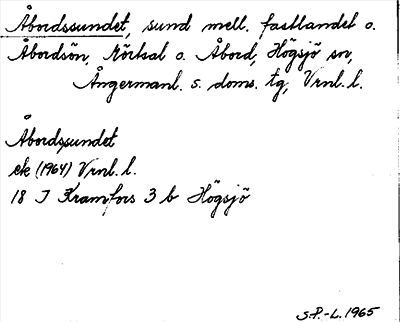 Åbordssundet, sund mell. fastlandet o.
Åbordsön, Rörtsal o. Åbord, Högsjö sn,
Ångermanl. s. doms. tg, Vrnl. l.
Åbordssundet
ek (1964) Vrnl. l.
18 J Kramfors 3 b Högsjö
S.P.-L. 1965